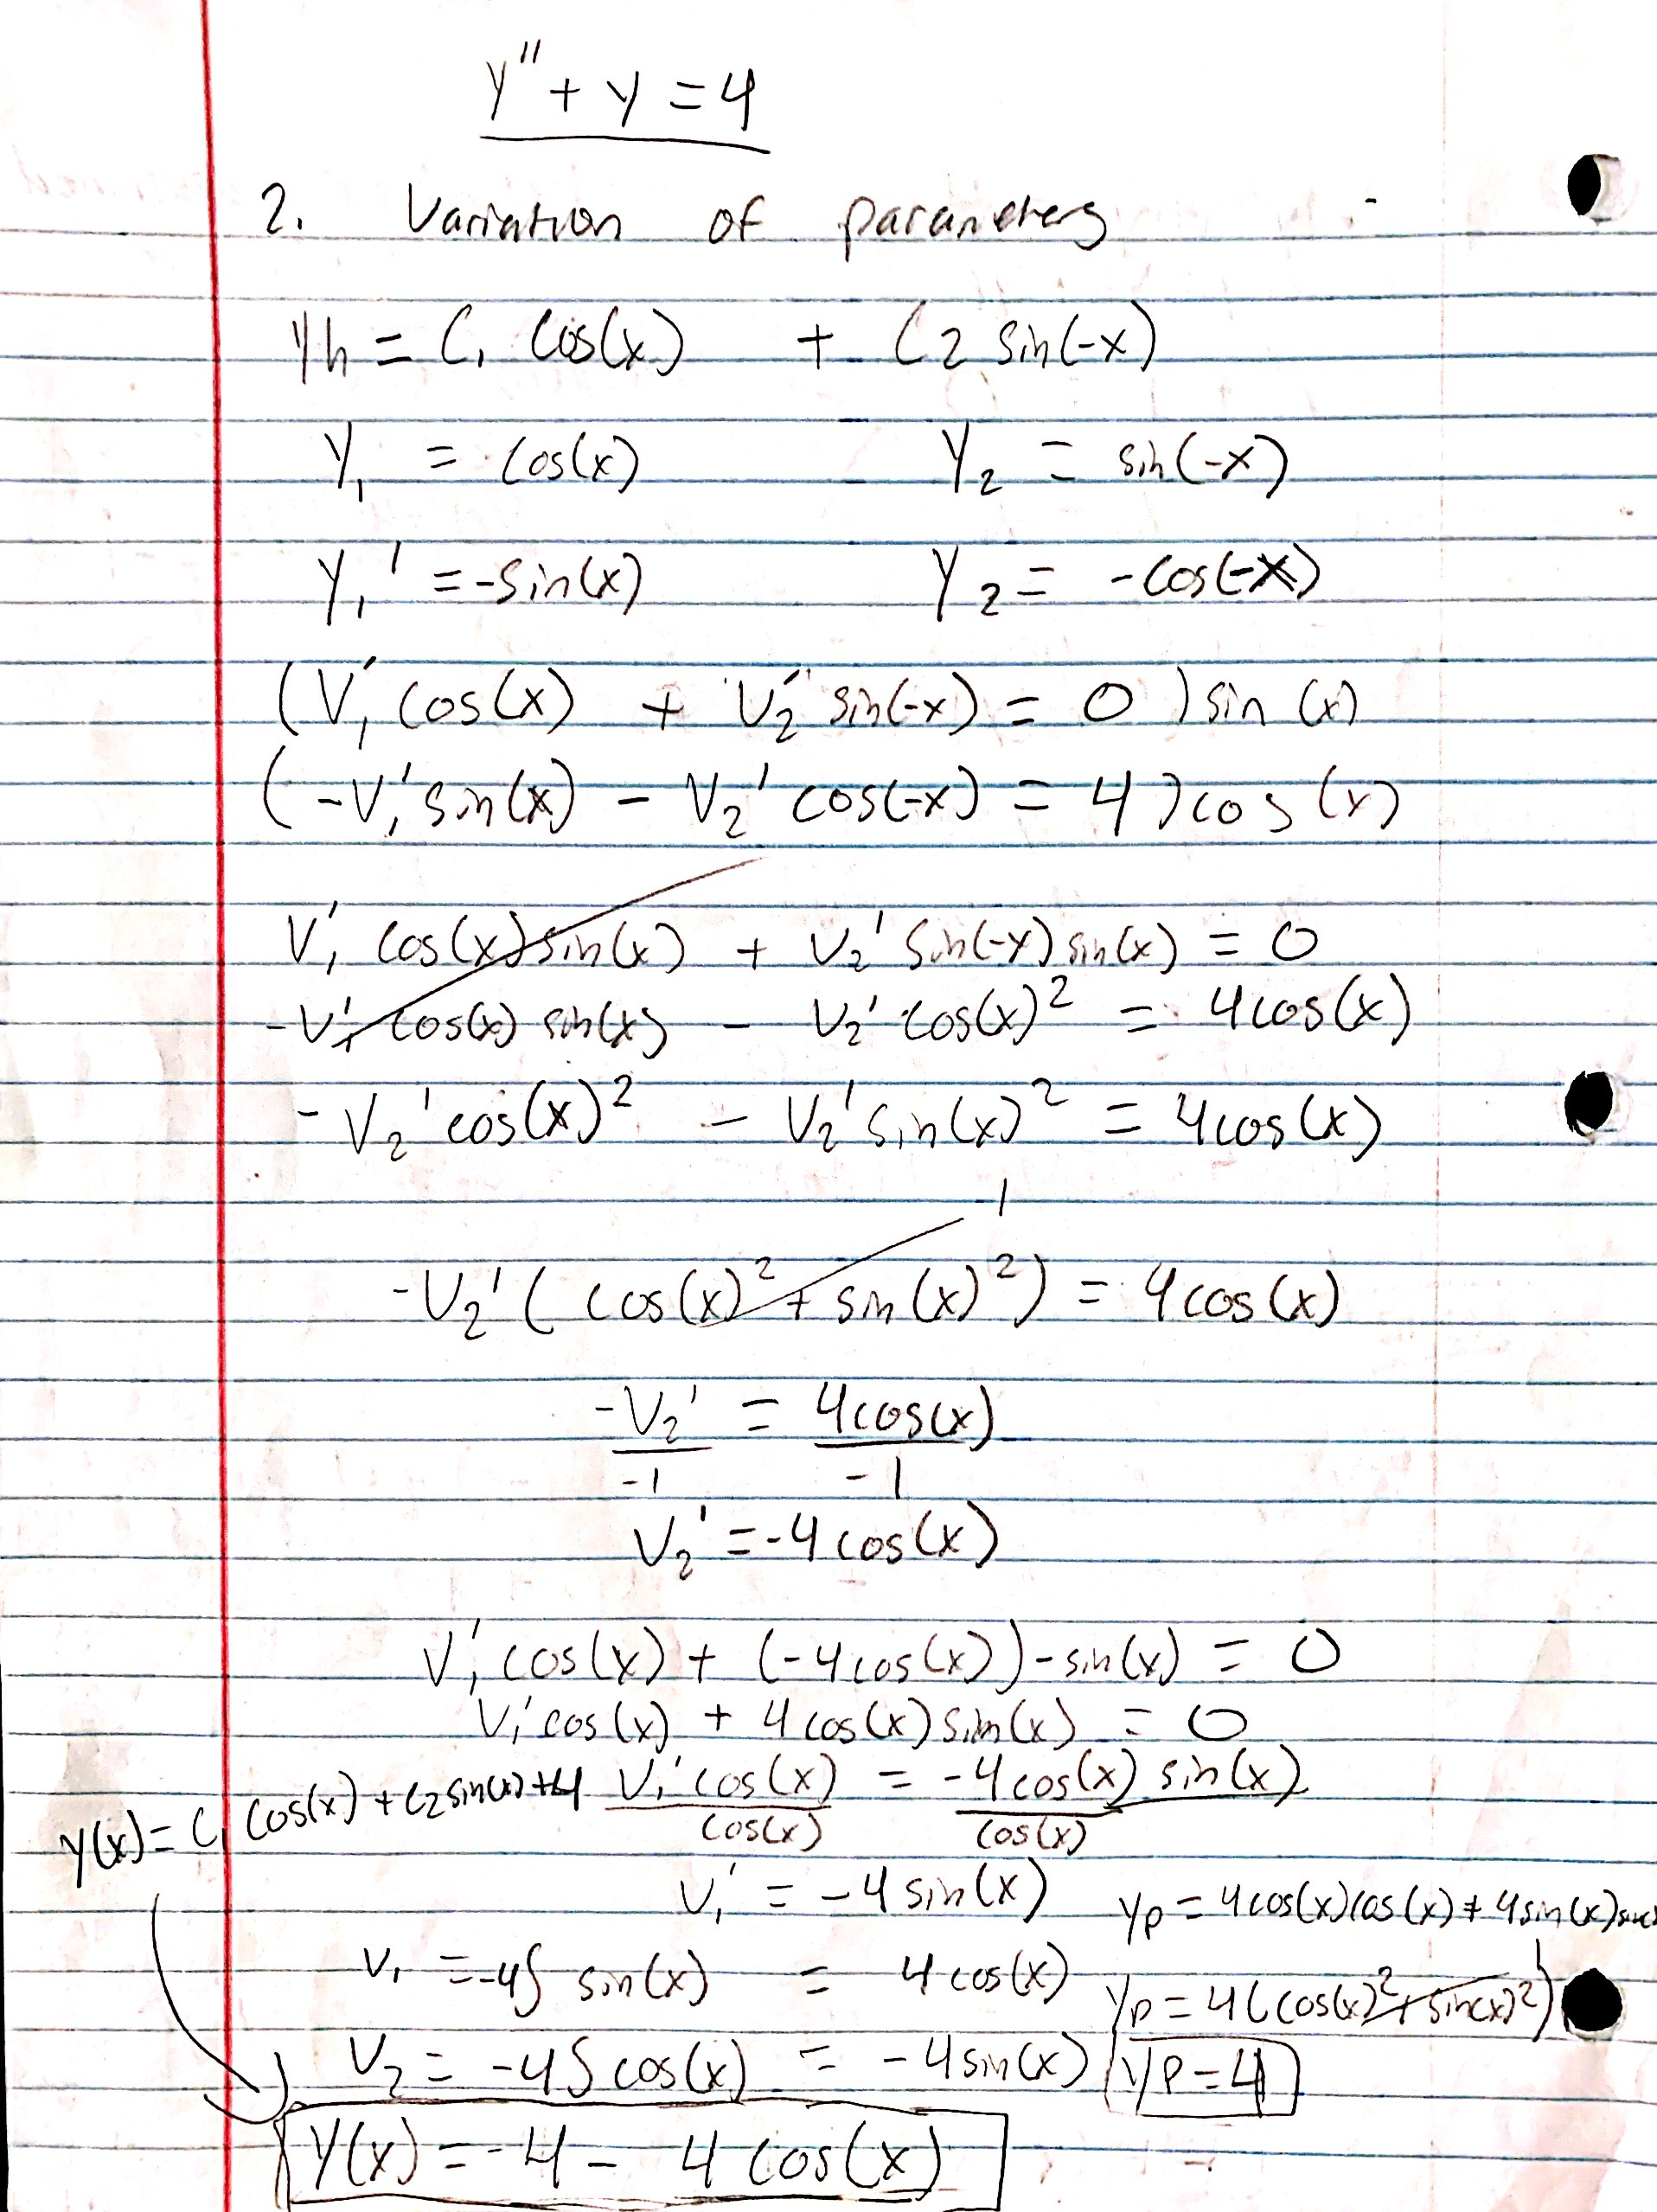 y'' + y = 4
2. Variation of parameters
yh = C1 cos(x) + C2 sin(-x)
y1 = cos(x) y2 = sin(-x)
y1' = -sin(x) y2 = -cos(-x)
(V1' cos(x) + V2' sin(-x) = 0) sin(x)
(-V1' sin(x) - V2' cos(-x) = 4) cos(x)
V1' cos(x) sin(x) + V2' sin(-x) sin(x) = 0
-V1' cos(x) sin(x) - V2' cos(x)² = 4cos(x)
-V2' cos(x)² - V2' sin(x)² = 4cos(x)
1
-V2' (cos(x)² + sin(x)²) = 4cos(x)
-V2' = 4cos(x)
-1 -1
V2' = -4cos(x)
V1' cos(x) + (-4cos(x))-sin(x) = 0
V1' cos(x) + 4cos(x) sin(x) = 0
V1' cos(x) = -4cos(x) sin(x)
cos(x) cos(x)
y(x) = C1 cos(x) + C2 sin(x) + 4
V1' = -4sin(x)
V1 = -4∫ sin(x) = 4cos(x)
V2 = -4∫ cos(x) = -4sin(x)
yp = 4cos(x)cos(x) + 4sin(x)
1
yp = 4(cos(x)² + sin(x)²)
yp = 4
y(x) = -4 - 4cos(x)